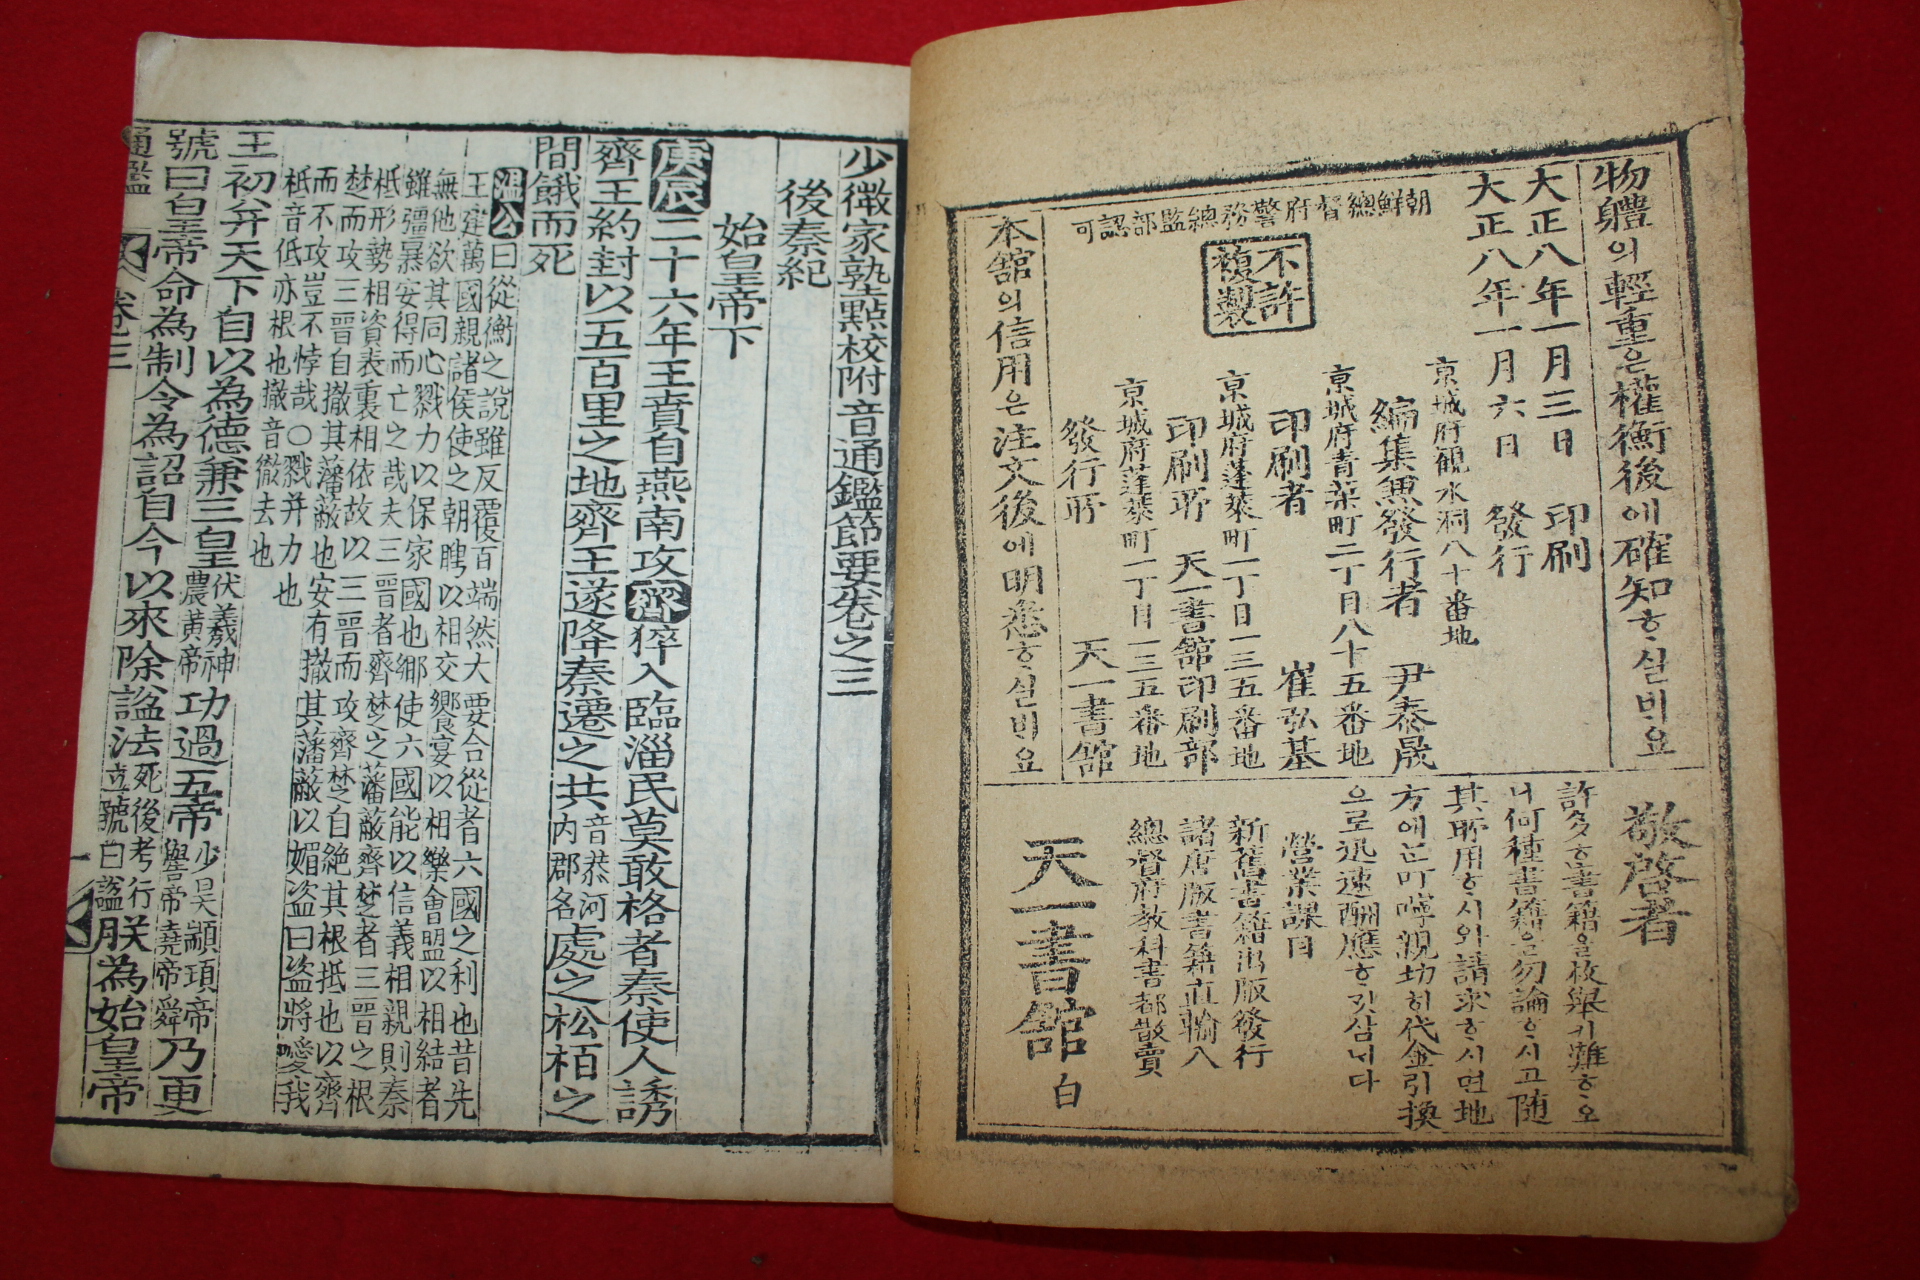 物軆의輕重은權衡後에確知ᄒᆞ실비요
大正八年一月三日 印刷
大正八年一月六日 發行
朝鮮總督府警務總監部認可
不許
複製
京城府觀水洞八十番地
編集兼發行者 尹泰晟
京城府靑葉町二丁目八十五番地
印刷者 崔弘基
京城府蓬萊町一丁目一三五番地
印刷所 天一書舘印刷部
京城府蓬萊町一丁目一三五番地
發行所 天一書舘
本舘의信用은注文後에明悉ᄒᆞ실비요
敬啓者
許多ᄒᆞᆫ書籍을枚擧키難ᄒᆞ오
니何種書籍을勿論ᄒᆞ시고隨
其所用ᄒᆞ시와請求ᄒᆞ시면地
方에ᄂᆞᆫ叮嚀親切히代金引換
으로迅速酬應ᄒᆞ깃삼ᄂᆡ다
營業課目
新舊書籍出版發行
諸唐版書籍直輸入
總督府敎科書都散賣
天一書舘 白
少微家塾點校附音通鑑節要卷之三
後秦紀
始皇帝下
庚辰二十六年王賁自燕南攻齊猝入臨淄民莫敢格者秦使人誘
齊王約封以五百里之地齊王遂降秦遷之共音恭河內郡名處之松栢之
間餓而死
溫公曰從衡之說雖反覆百端然大要合從者六國之利也昔先
王建萬國親諸侯使之朝聘以相交饗宴以相樂會盟以相結者
無他欲其同心戮力以保家國也鄕使六國能以信義相親則秦
雖彊暴安得而亡之哉夫三晉者齊楚之藩蔽齊楚者三晉之根
柢形勢相資表裏相依故以三晉而攻齊楚自絶其根柢也以齊
楚而攻三晉自撤其藩蔽也安有撤其藩蔽以媚盜曰盜將愛我
而不攻豈不悖哉○戮幷力也
柢音低亦根也撤音徹去也
王初幷天下自以為德兼三皇伏羲神農黃帝功過五帝少昊顓頊帝嚳帝堯帝舜乃更
號曰皇帝命為制令為詔自今以來除諡法死後考行立號曰諡朕為始皇帝
通鑑 卷三